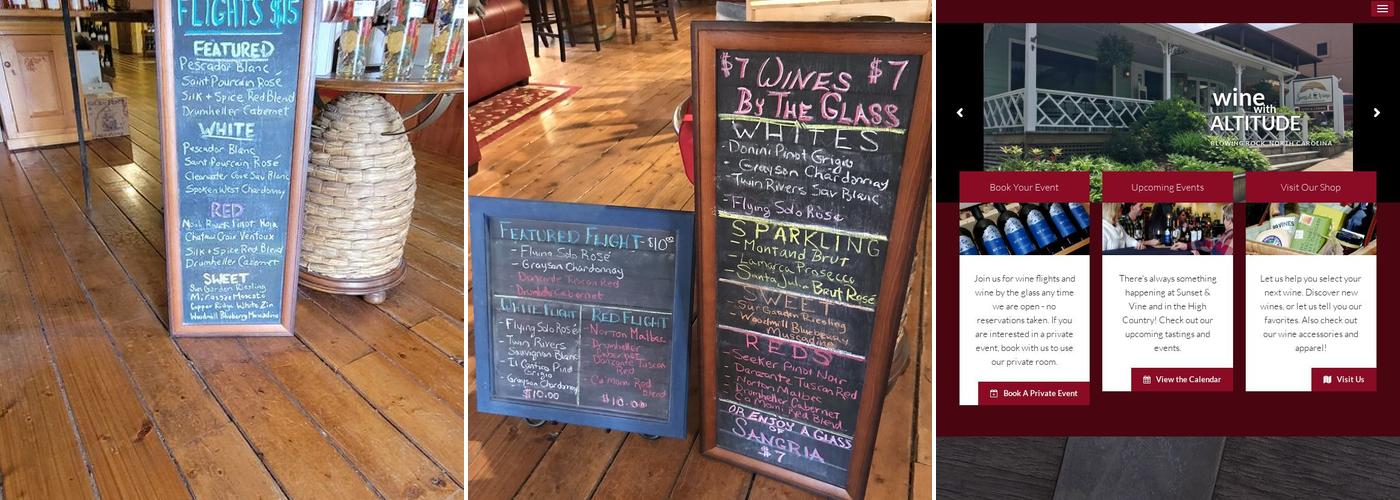 FLIGHTS $15
FEATURED
Pescador Blanc
Saint Pourcain Rosé
Silk + Spice Red Blend
Drumheller Cabernet
WHITE
Pescador Blanc
Saint Pourcain Rosé
Clearwater Cove Sav Blanc
Spoken West Chardonnay
RED
Pinot Noir
Chateau Croix Ventoux
Silk + Spice Red Blend
Drumheller Cabernet
SWEET
Sun Garden Riesling
Moscato
Copper Ridge White Zin
Woodmill Blueberry Muscadine
FEATURED FLIGHT - $10.00
- Flying Solo Rosé
- Grayson Chardonnay
- Danzante Tuscan Red
- Drumheller Cabernet
WHITE FLIGHT
- Flying Solo Rosé
- Twin Rivers
Sauvignon Blanc
- Il Cantico Pinot
Grigio
- Grayson Chardonnay
$10.00
RED FLIGHT
- Norton Malbec
- Drumheller
Cabernet
- Danzante Tuscan
Red
- Ca Momi Red
Blend
$10.00
$7 WINES $7
BY THE GLASS
WHITES
- Donini Pinot Grigio
- Grayson Chardonnay
- Twin Rivers Sav Blanc
- Flying Solo Rosé
SPARKLING
- Montand Brut
- Lamarca Prosecco
- Santa Julia Brut Rosé
SWEET
- Sun Garden Riesling
- Woodmill Blueberry
Muscadine
REDS
- Seeker Pinot Noir
- Danzante Tuscan Red
- Norton Malbec
- Drumheller Cabernet
- Ca Momi Red Blend
OR ENJOY A GLASS
OF
SANGRIA
$7
wine
with
ALTITUDE
BLOWING ROCK, NORTH CAROLINA
Book Your Event
Join us for wine flights and
wine by the glass any time
we are open - no
reservations taken. If you
are interested in a private
event, book with us to use
our private room.
Book A Private Event
Upcoming Events
There's always something
happening at Sunset &
Vine and in the High
Country! Check out our
upcoming tastings and
events.
View the Calendar
Visit Our Shop
Let us help you select your
next wine. Discover new
wines, or let us tell you our
favorites. Also check out
our wine accessories and
apparel!
Visit Us